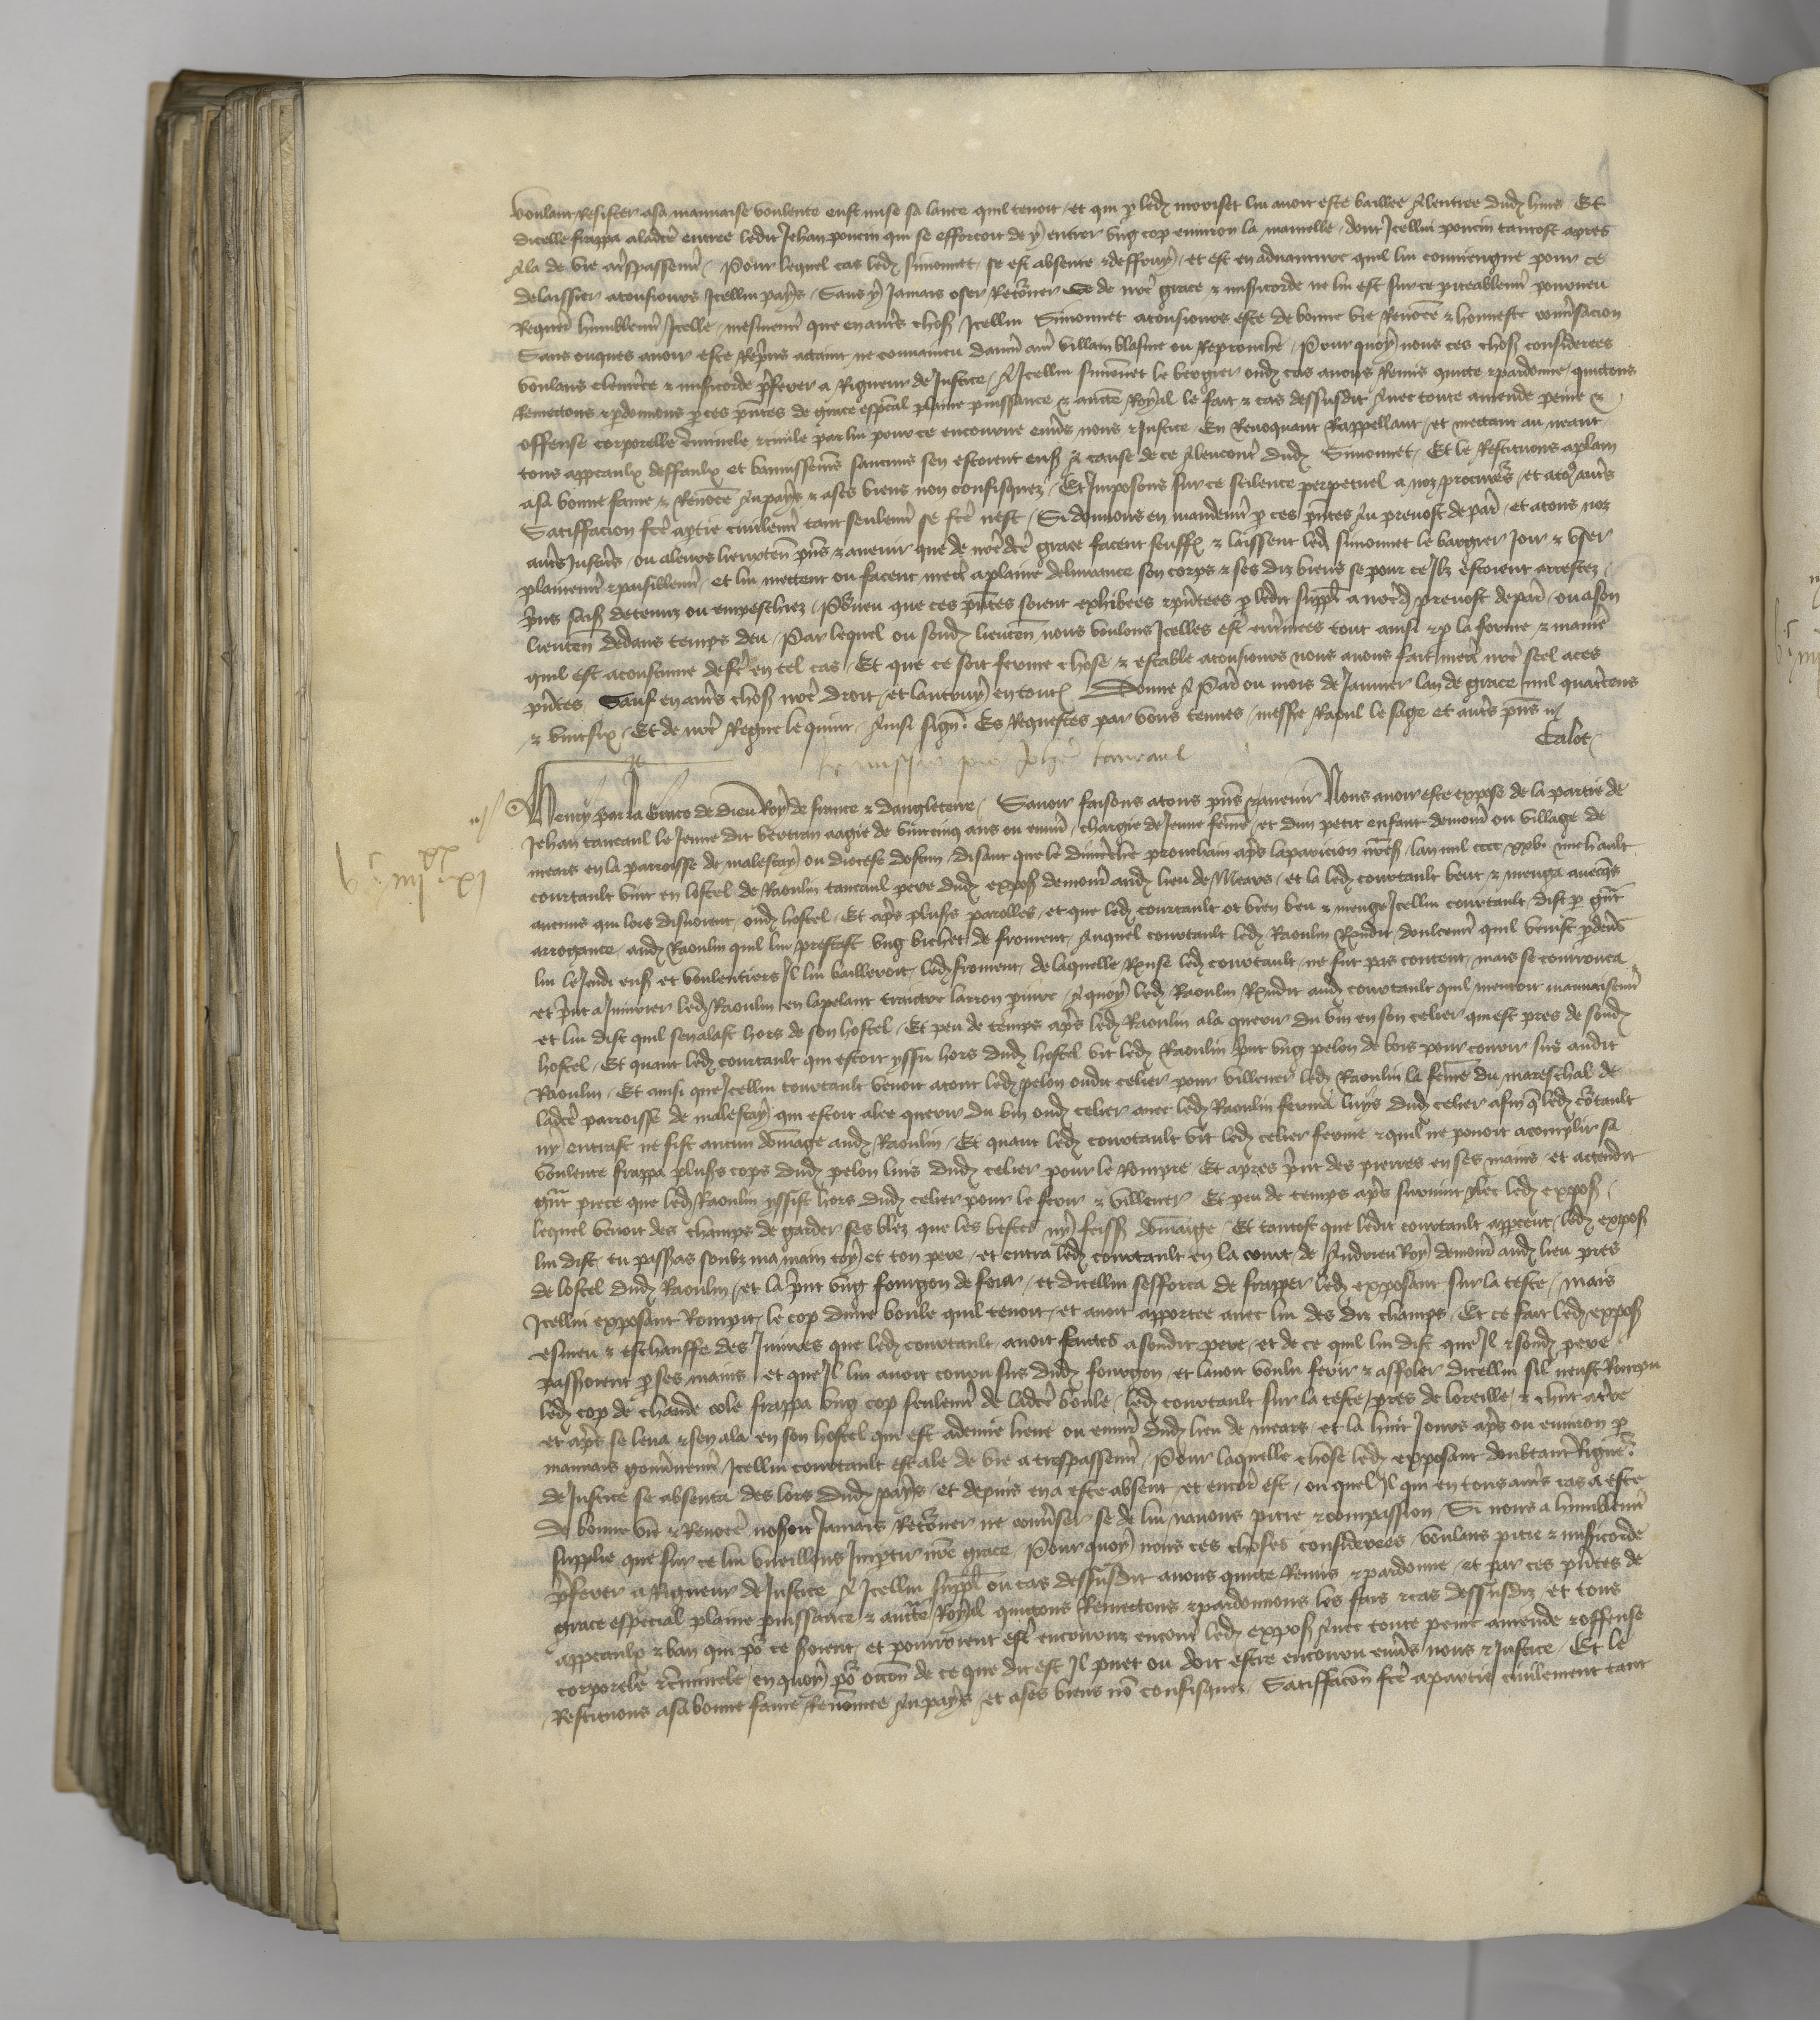 voulant resister a sa mauvaise voulente eust mise sa lance quil tenoit et qui p led moriset lui avoit este baillee a lentree dud huis Et
dicelle frappa a ladce entree ledit Jehan poncin qui se efforcoit de y entrer ung cop environ la mamelle dont Icellui poncin tantost apres
ala de vie a trespassemt Pour lequel cas led simonnet se est absente et deffuy et est en advanture quil lui conviengne pour ce
delaissier a tousiours Icellui pays Sans y Jamais oser retorner se de nre grace et misicorde ne lui est sur ce piteablemt pourveu
Requert humblemt Icelle mesmemt que en autrs choses Icellui Simonnet a tousiours este de bonne vie renomee et honneste conversacion
Sans onques avoir este repris attaint ne convaincu daucun autre villain blasme ou reprouche Pour quoy nous ces choses considerees
voulans clemence et misicorde preferer a rigueur de Justice A Icellui simonnet le bergier oud cas avons remis quitte et pardonne quittons
remettons et pdonnons p ces pntes de grace especal plaine puissance et aucte royal le fait et cas dessusdit avec toute amende peine et
offense corporelle criminele et civile par lui pour ce encourue envers nous et Justice En revoquant rappellant et mettant au neant
tous appeaulx deffaulx et bannissemens saucuns sen estoient ensuiz a cause de ce a lencontre dud Simonnet Et le restituons a plain
a sa bonne fame et renomee au pays et a ses biens non confisquez Et Imposons sur ce scilence perpetuel a noz procureurs et a tous autrs
Satisfacion fce a ptie civilemt tant seulemt se fce nest Si donnons en mandemt p ces pntes au prevost de paris et a tous noz
autrs Justiciers ou a leurs lieuxtenans pns et avenir que de nre dce grace facent seuffrent et laissent led simonnet le bergier Joir et user
plainemt et paisiblemt et lui mettent ou facent mettre a plaine delivrance son corps et ses diz biens se pour ce Ilz estoient arrestez
prins saisiz detenuz ou empeschiez Pourveu que ces pntes soient exhibees et pntees p ledit suppl a nred prevost de paris ou a son
lieutenant dedans temps deu Par lequel ou sond lieuten nous voulons Icelles estre enterinees tout ainsi et p la forme et maniere
quil est acoustume de fe en tel cas Et que ce soit ferme chose et estable a tousiours nous avons fait mettre nre scel a ces
pntes Sauf en autrs choses nre droit et lautruy en toutes Donne a Paris ou mois de Janvier lan de grace mil quatrecens
et vint six Et de nre regne le quint Ainsi signe Es requestes par vous tenues messre Raoul le sage et autrs pns
Calot
Remissio pro Johe taveaul
Henry par la grace de dieu Roy de france et dangleterre Savoir faisons a tous pns et avenir Nous avoir este expose de la partie de
Jehan taveaul le Jeune dit bertran aagie de vint cinq ans ou environ chargie de Jeune feme et dun petit enfant demour ou village de
mears en la parroisse de malestay ou diocese dostun disant que le dimenche prouchain aps laparicion nres lan mil cccc xxv michault
courtault vint en lostel de Raoulin taveaul pere dud expos demour aud lieu de Mears et la led courtault beut et menga avecques
aucuns qui lors disnoient oud hostel Et aps plusrs parolles et que led courtault ot bien beu et menge Icellui courtault dist p grant
arrogance aud Raoulin quil lui prestast ung bichet de froment auquel courtault led Raoulin respondit doulcemt quil venist pdevers
lui le Jeudi ensuiv et voulentiers Il lui bailleroit led froment de laquelle response led courtault ne fut pas content mais se courrouca
et print a Injurier led Raoulin en lapelant traictre larron A quoy led Raoulin respondit aud courtault quil mentoit mauvaisemt
et lui dist quil sen alast hors de son hostel Et peu de temps aps led Raoulin ala querir du vin en son celier qui est pres de sond
hostel Et quant led courtault qui estoit yssu hors dud hostel vit led Raoulin print ung pelon de bois pour courir sus audit
Raoulin Et ainsi que Icellui courtault venoit a tout led pelon oudit celier pour villener led Raoulin la feme du mareschal de
ladce parroisse de malestay qui estoit alee querir du vin oud celier avec led Raoulin ferma luys dud celier afin q led cortault
ny entrast ne fist aucun domage aud Raoulin Et quant led courtault vit led celier ferme et quil ne povoit acomplir sa
voulente frappa plusrs cops dud pelon luis dud celier pour le rompre Et apres print des pierres en ses mains et attendit
grant piece que led Raoulin yssist hors dud celier pour le ferir et villener Et peu de temps aps survint illec led expos
lequel venoit des champs de garder ses blez que les bestes ny feissent domaige Et tantost que ledit courtault apperceut led expos
lui dist tu passeras soubz ma main toy et ton pere et entra led courtault en la court de Andrieu Roy demour aud lieu pres
de lostel dud Raoulin et la print ung fourgon de four et dicellui sefforca de frapper led exposant sur la teste mais
Icellui exposant rompit le cop dune boule quil tenoit et avoit apportee avec lui des diz champs Et ce fait led expos
esmeu et eschauffe des Injures que led courtault avoit faictes a sondit pere et de ce quil lui dist que Il et sond pere
passeroient p ses mains et que Il lui avoit couru sus dud fourgon et lavoit voulu ferir et affoler dicellui sil neust rompu
led cop de chaude cole frappa ung cop seulemt de ladce boule led courtault sur la teste pres de loreille et chut a terre
et aps se leva et sen ala en son hostel qui est a demie lieue ou environ dud lieu de mears et la huit Jours aps ou environ p
mauvais gouvernemt Icellui courtault est ale de vie a trespassemt Pour laquelle chose led exposant doubtant rigueur
de Justice se absenta des lors dud pays et depuis en a este absent et encore est ou quel Il qui en tous autrs cas a este
de bonne vie et renomee noseroit Jamais retorner ne converser se de lui navons pitie et compassion Si nous a humblemt
supplie que sur ce lui vueillons Impartir nre grace Pour quoy nous ces choses considerees voulans pitie et misicorde
preferer a rigueur de Justice A Icellui suppl ou cas dessusdit avons quitte remis et pardonne et par ces pntes de
grace especial plaine puissance et aucte royal quictons remettons et pardonnons les fais et cas dessusdiz et tous
appeaulx et ban qui por ce seroient et pourroient estre encouruz encontre led expos avec toute peine amende et offense
corporele et criminele en quoy por occon de ce que dit est Il puet ou doit estre encouru envers nous et Justice Et le
restituons a sa bonne fame renomee au pays et a ses biens no confisquez Satisfacon fce a partie civilement tant